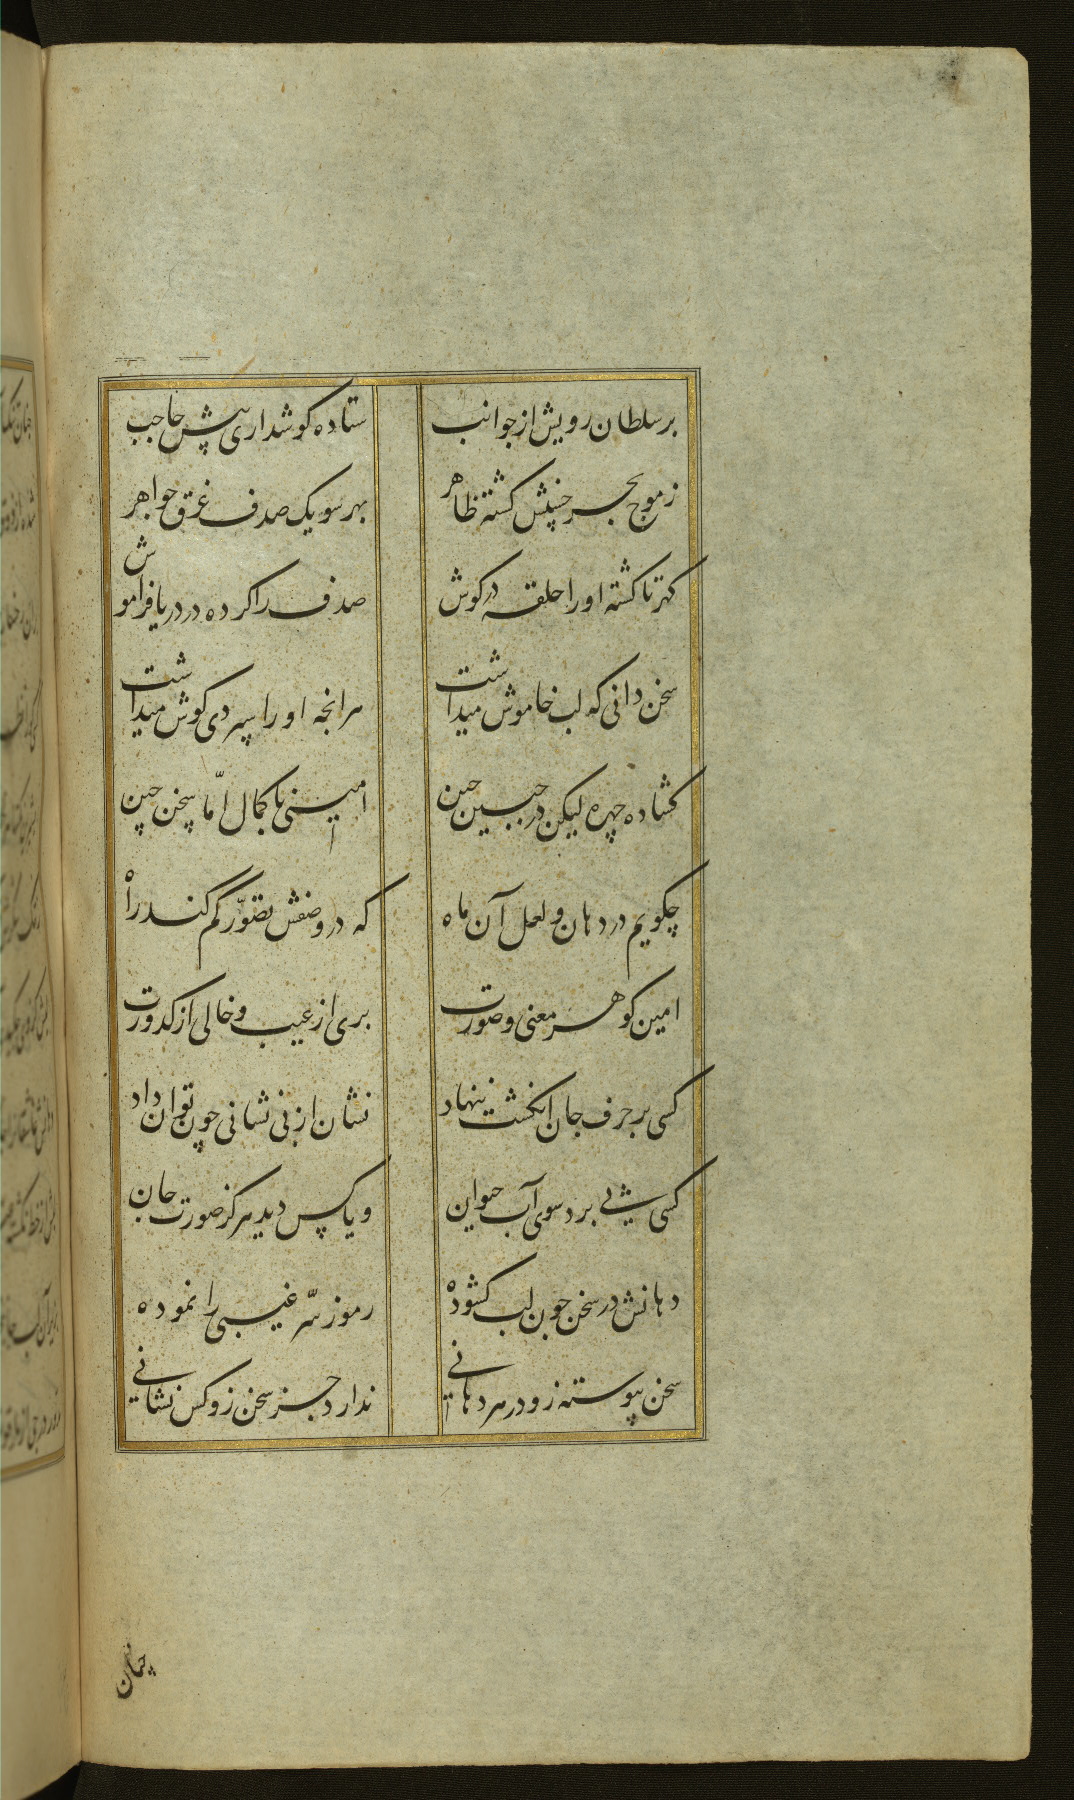 برسلطان رویش از جوانب
ستاده کوشداری پیش حاجب
زموج بحر حسنش کشته ظاهر
بهر سو یک صدف غرق جواهر
کهرتا کشته او را حلقه در کوش
صدف را کرده در دریا فراموش
سخن دانی که لب خاموش میداشت
هرانچه او را سپردی کوش میداشت
کشاده چهره لیکن در جبین چین
امینی با کمال امّا سخن چین
چکویم در دهان و لعل آن ماه
که در وصفش تصوّر کم کند راه
امین کوهر معنی و صورت
بری از عیب و خالی از کدورت
کسی بر حرف جان انکشت ننهاد
نشان از بی نشانی چون توان داد
کسی پی برد سوی آب حیوان
و یا کس دید هرکز صورت جان
دهانش در سخن چون لب کشوده
رموز سرّ غیبی را نموده
سخن پیوسته زو در هر دهانی
ندارد جز سخن زو کس نشانی
چنان